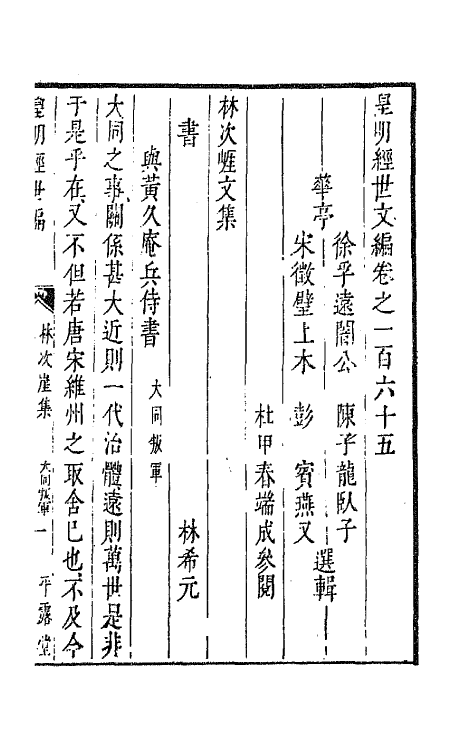 皇明經世文編卷之一百六十五
華亭
徐孚遠闇公 陳子龍臥子
宋徵璧上木 彭賓燕又
選輯
杜甲春端成參閱
林次崖文集
林希元
書
與黃久庵兵侍書 大同叛軍
大同之事關係甚大近則一代治體遠則萬世是非
于是乎在又不但若唐宋維州之取舍已也不及今
皇明經世編 林次崖集 大同叛軍 一 平露堂